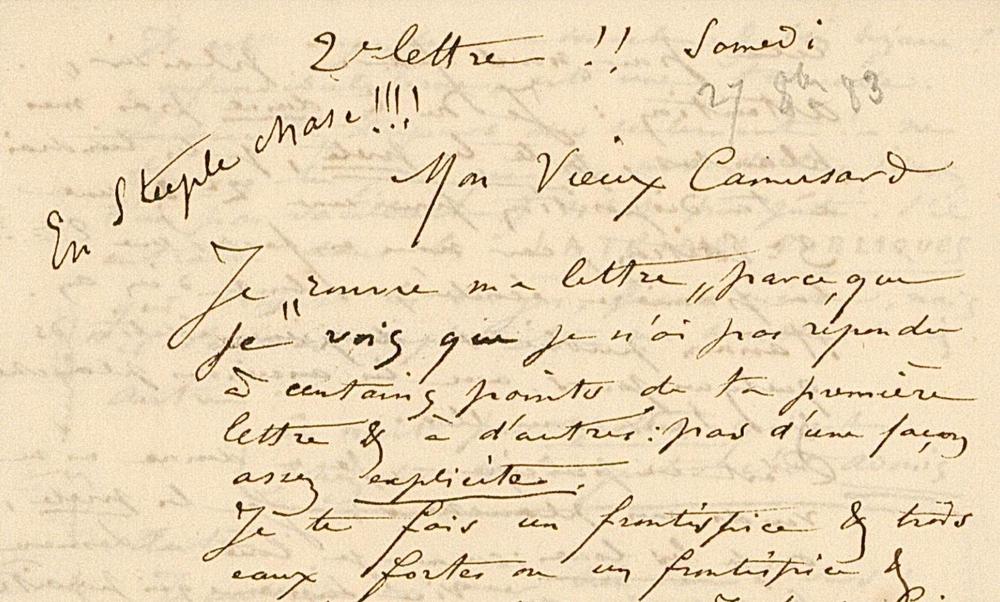 2e lettre !! Samedi
27 8bre 83
En Steeple chase !!!
Mon Vieux Camusard
Je „rouvre ma lettre„ parce que
je" vois que je n'ai pas répondu
à certains points de ta première
lettre & à d'autres: pas d'une façon
assez explicite.
Je te fais un frontispice & trois
eaux fortes ou un frontispice &